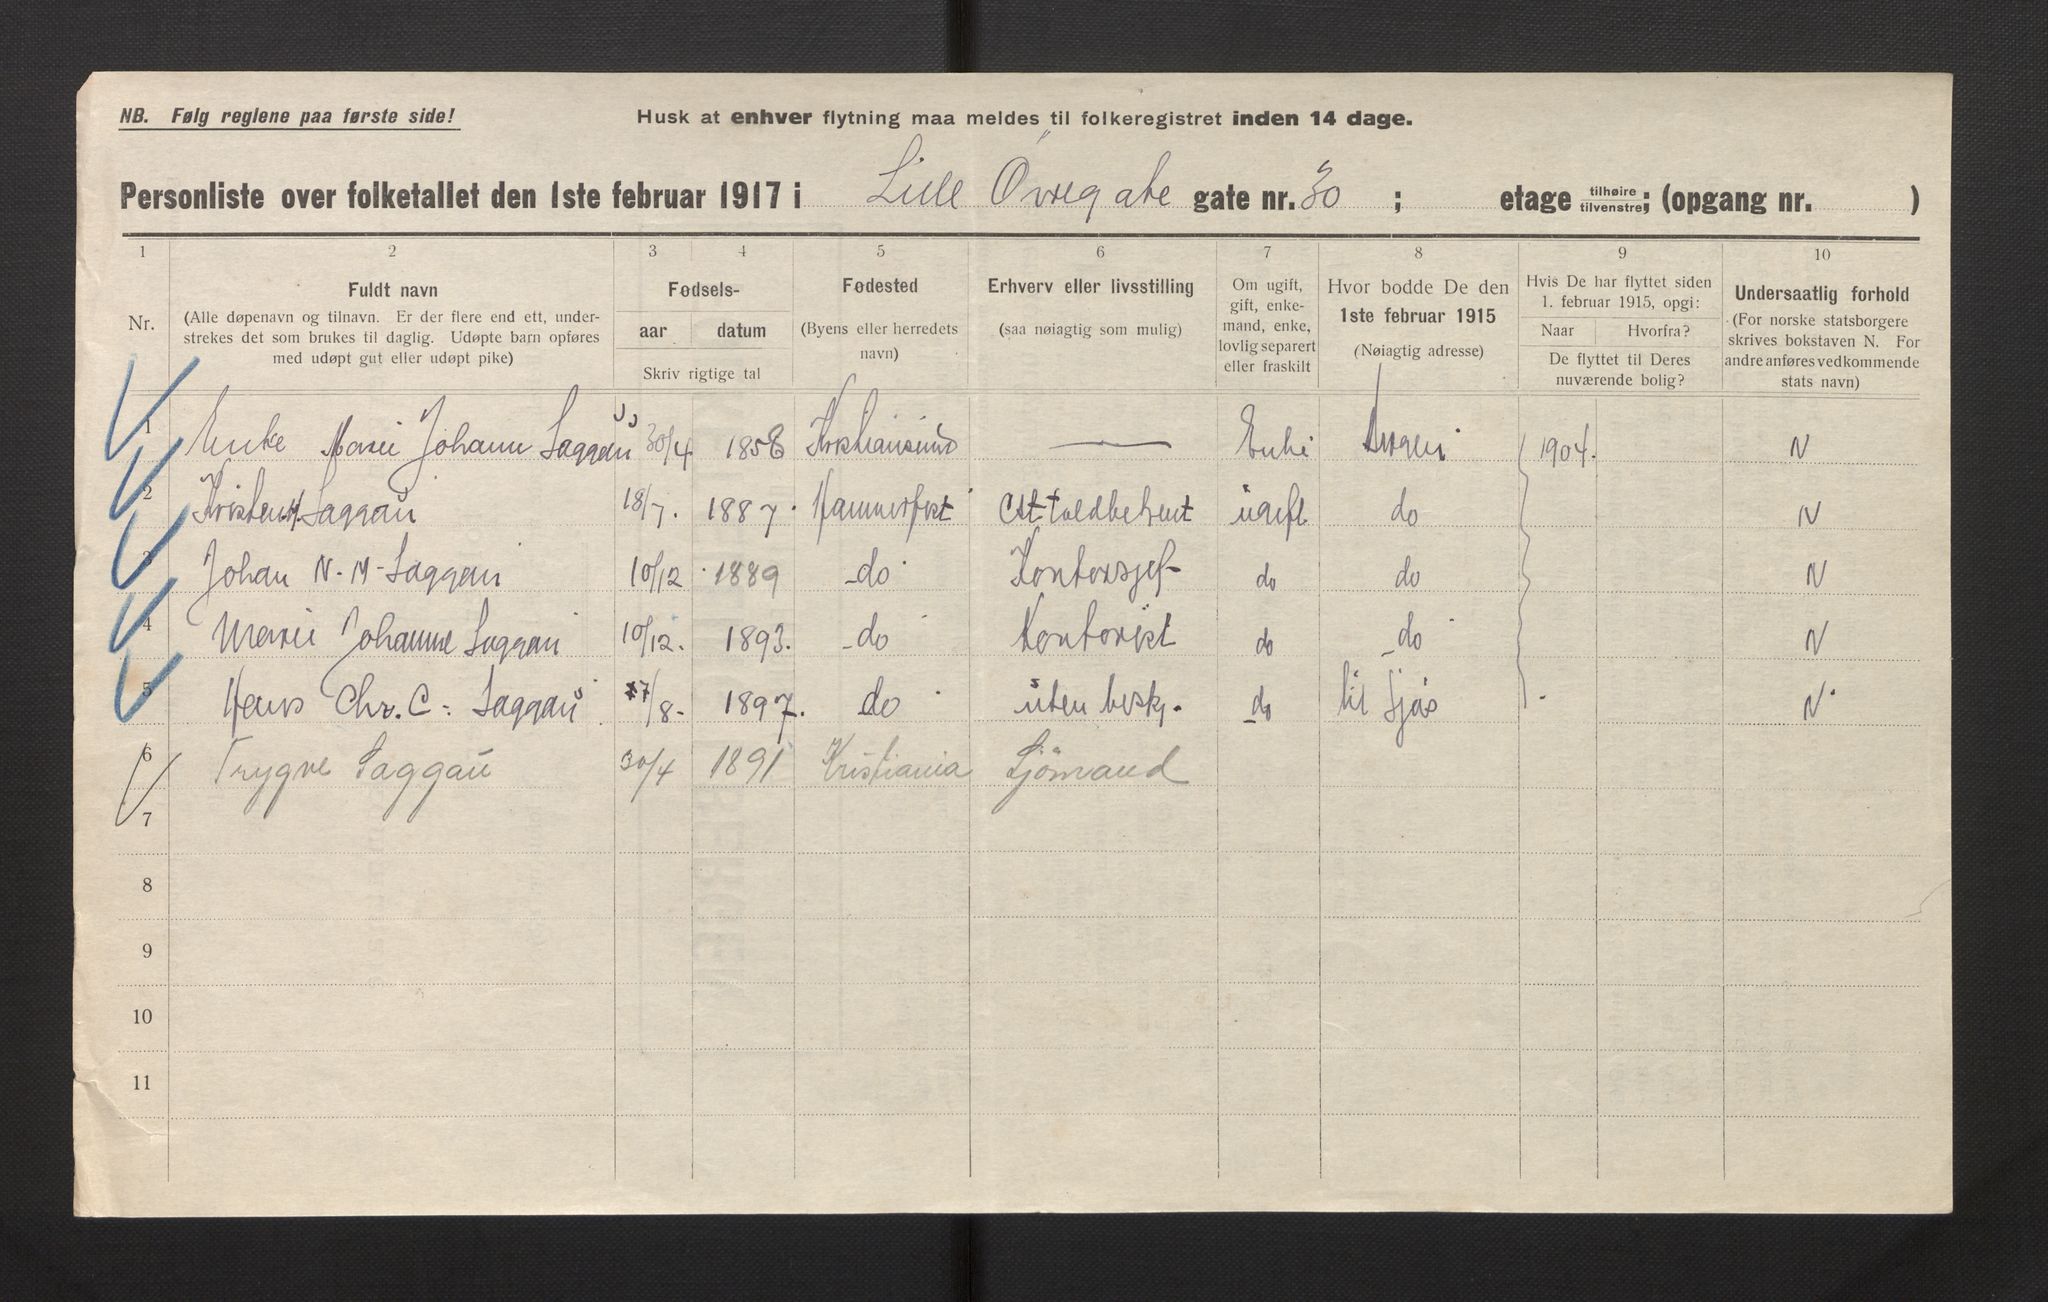 NB. Følg reglene paa første side!
Husk at enhver flytning maa meldes til folkeregistret inden 14 dage.
Personliste over folketallet den 1ste februar 1917 i Lille Övregate gate nr. 30 ; etage tilhøire tilvenstre; (opgang nr. )
1 2 3 4 5 6 7 8 9 10
Nr.
Fuldt navn
(Alle døpenavn og tilnavn. Er der flere end ett, under-
strekes det som brukes til daglig. Utdøpte barn opføres
med udøpt gut eller udøpt pike)
Fødsels-
aar datum
Skriv rigtige tal
Fødested
(Byens eller herredets
navn)
Erhverv eller livsstilling
(saa nøiagtig som mulig)
Om ugift,
gift, enke-
mand, enke,
lovlig separert
eller fraskilt
Hvor bodde De den
1ste februar 1915
(Nøiagtig adresse)
Hvis De har flyttet siden
1. februar 1915, opgi:
Naar Hvorfra?
De flyttet til Deres
nuværende bolig?
Undersaatlig forhold
(For norske statsborgere
skrives bokstaven N. For
andre anføres vedkommende
stats navn)
1 Enke Marie Johann Saggaü 30/4 1858 Kristiansund — Enke 1904. N
2 Saggaü 18/7. 1887. Hammerfest ugift do N
3 Johan N. M. Saggau 10/12 1889 do Kontorsjef do do N
4 Marie Johanne Saggau 10/12. 1893. do Kontorist do do N
5 Hans Chr. C. Saggaü 7/8. 1897. do uten besk. do til Sjös N
6 Trygve Saggaü 30/4 1891 Kristiania Sjömand
7
8
9
10
11